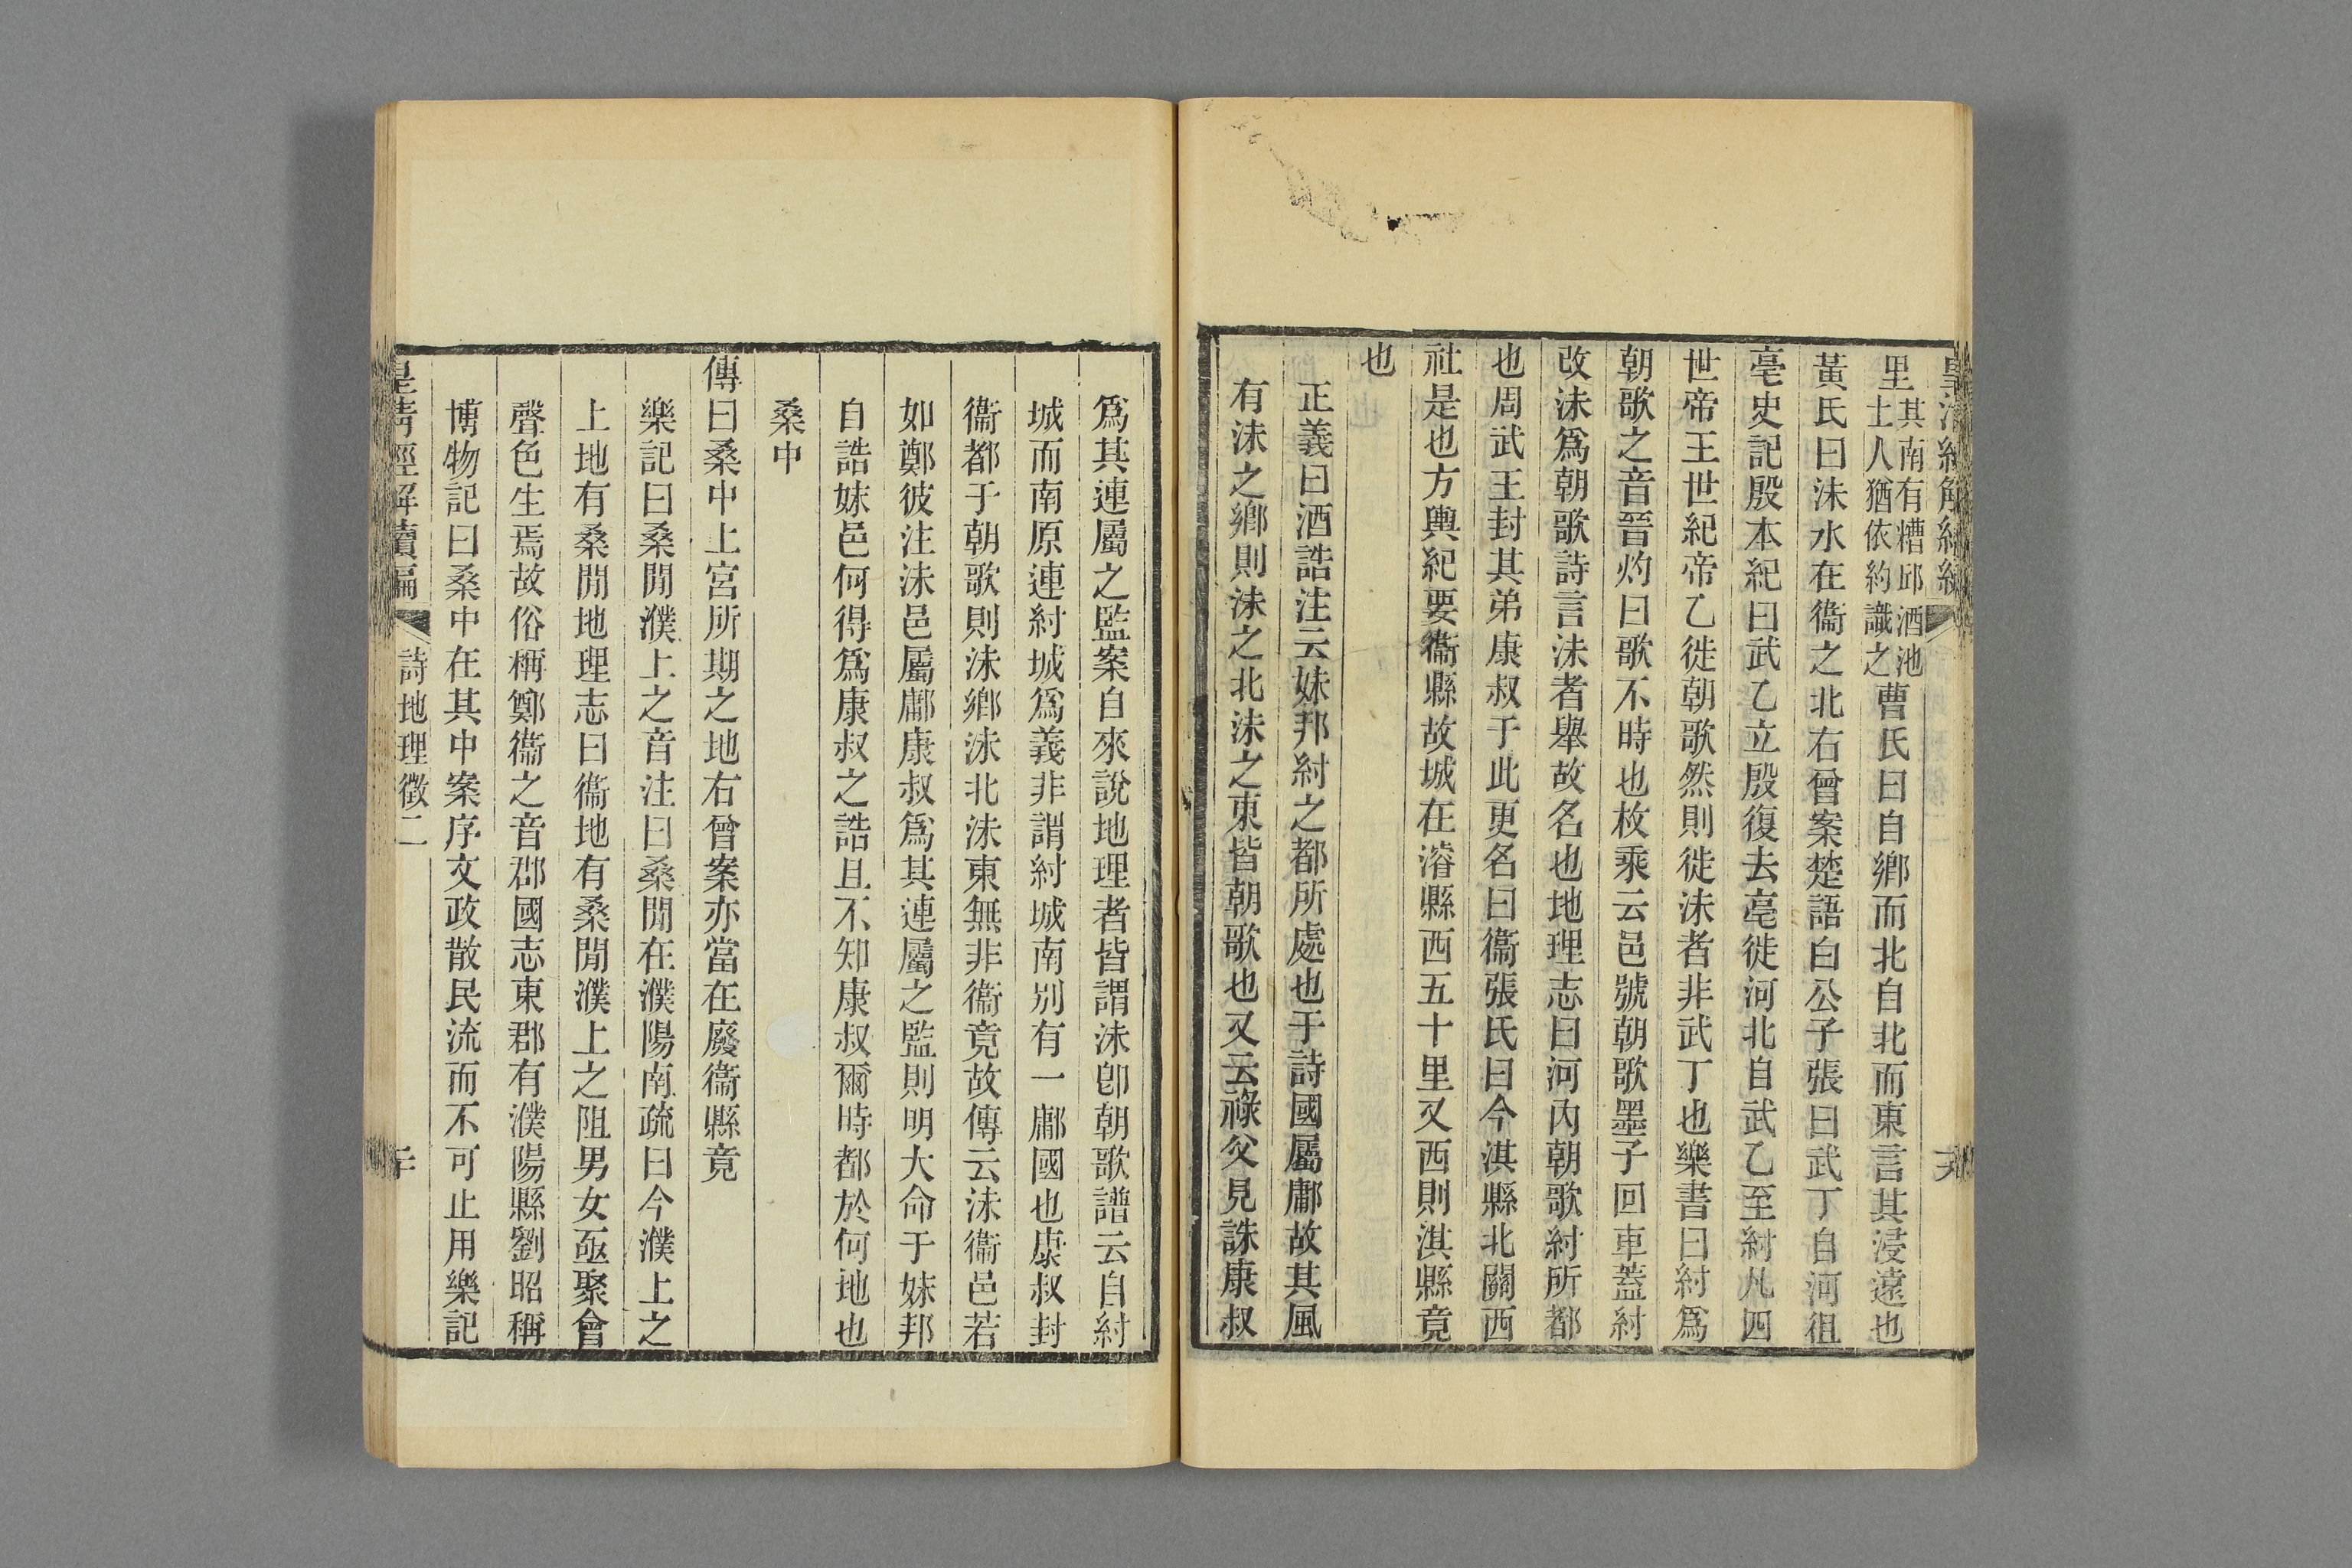 里其南有糟邱酒池土人猶依約識之曹氏曰自鄉而北自北而東言其浸遠也
黃氏曰沬水在衞之北右曾案楚語白公子張曰武丁自河徂
亳史記殷本紀曰武乙立殷復去亳徙河北自武乙至紂凡四
世帝王世紀帝乙徙朝歌然則徙沬者非武丁也樂書曰紂爲
朝歌之音晉灼曰歌不時也枚乘云邑號朝歌墨子回車蓋紂
改沬爲朝歌詩言沬者舉故名也地理志曰河內朝歌紂所都
也周武王封其弟康叔于此更名曰衞張氏曰今淇縣北關西
社是也方輿紀要衞縣故城在濬縣西五十里又西則淇縣竟
也
正義曰酒誥注云妹邦紂之都所處也于詩國屬鄘故其風
有沬之鄉則沬之北沬之東皆朝歌也又云祿父見誅康叔
爲其連屬之監案自來說地理者皆謂沬卽朝歌譜云自紂
城而南原連紂城爲義非謂紂城南別有一鄘國也康叔封
衞都于朝歌則沬鄉沬北沬東無非衞竟故傳云沬衞邑若
如鄭彼注沬邑屬鄘康叔爲其連屬之監則明大命于妹邦
自誥妹邑何得爲康叔之誥且不知康叔爾時都於何地也
桑中
傳曰桑中上宮所期之地右曾案亦當在廢衞縣竟
樂記曰桑閒濮上之音注曰桑閒在濮陽南疏曰今濮上之
上地有桑閒地理志曰衞地有桑閒濮上之阻男女亟聚會
聲色生焉故俗稱鄭衞之音郡國志東郡有濮陽縣劉昭稱
博物記曰桑中在其中案序文政散民流而不可止用樂記
皇清經解續編 詩地理徵二